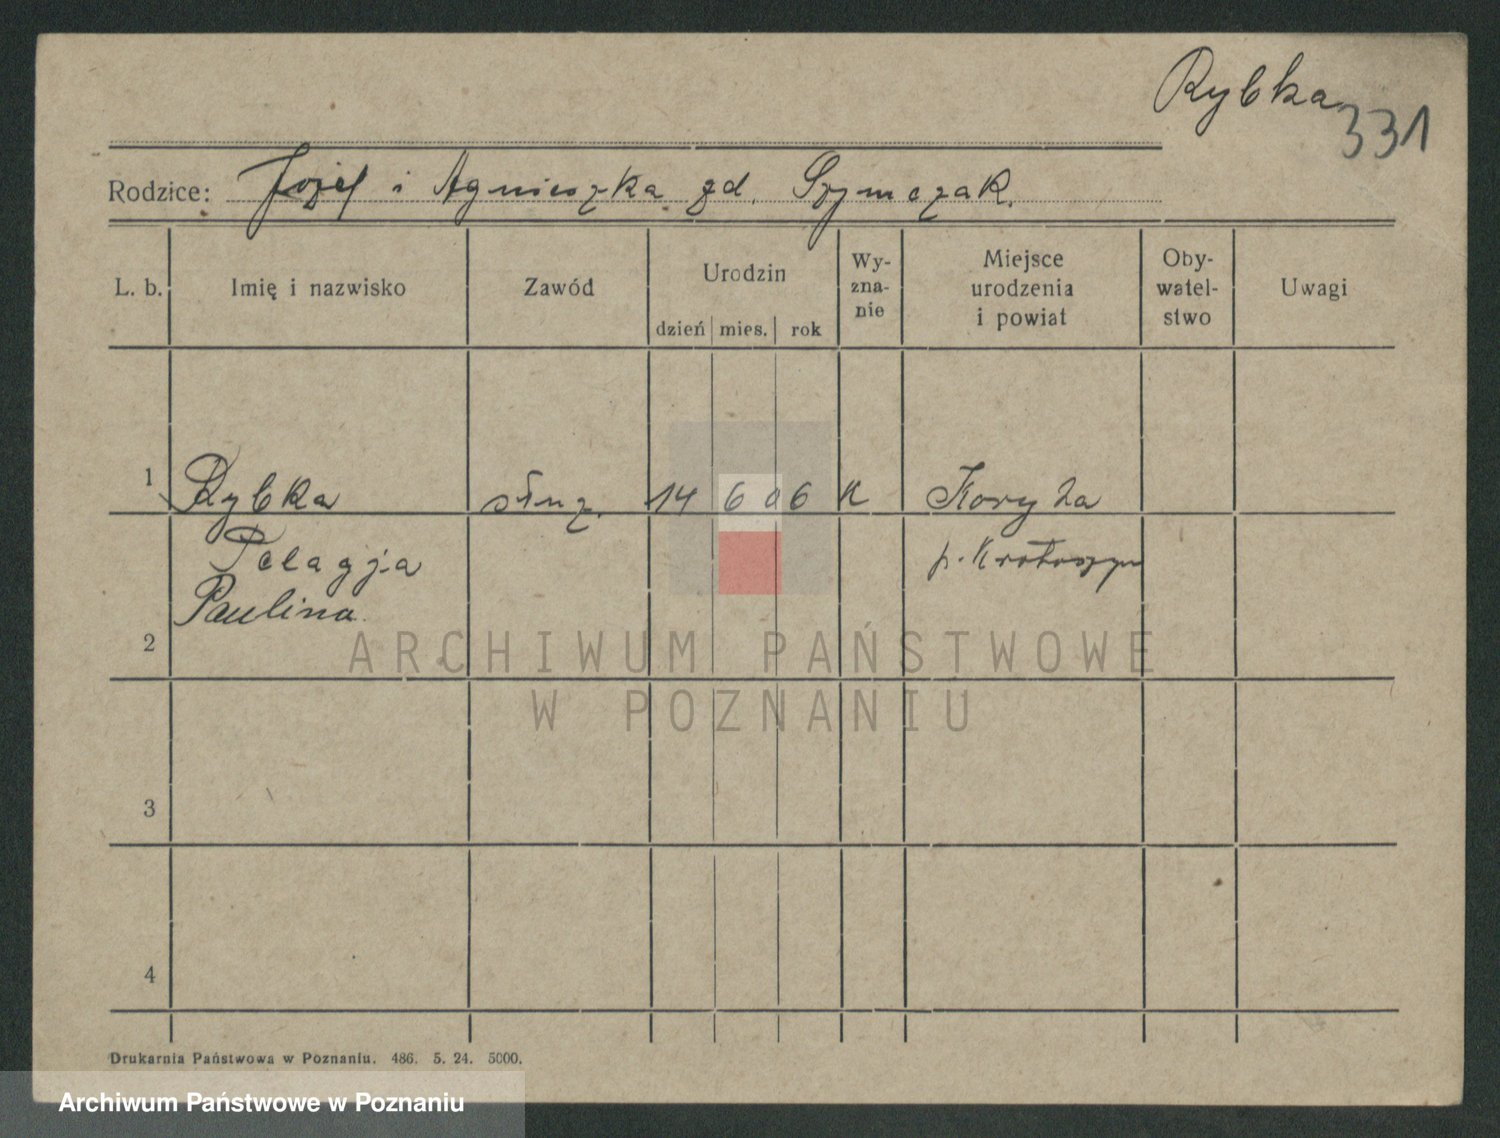 Rybka
331
Rodzice: Józef i Agnieszka zd. Szymczak.
L. b. Imię i nazwisko Zawód Urodzin dzień mies. rok Wy-zna-nie Miejsce urodzenia i powiat Oby-watel-stwo Uwagi
1 Rybka służ. 14 6 06 K Koryta
Pelagja p. Krotoszyn
Paulina
2
3
4
Drukarnia Państwowa w Poznaniu. 486. 5. 24. 5000.
ARCHIWUM PAŃSTWOWE
W POZNANIU
Archiwum Państwowe w Poznaniu